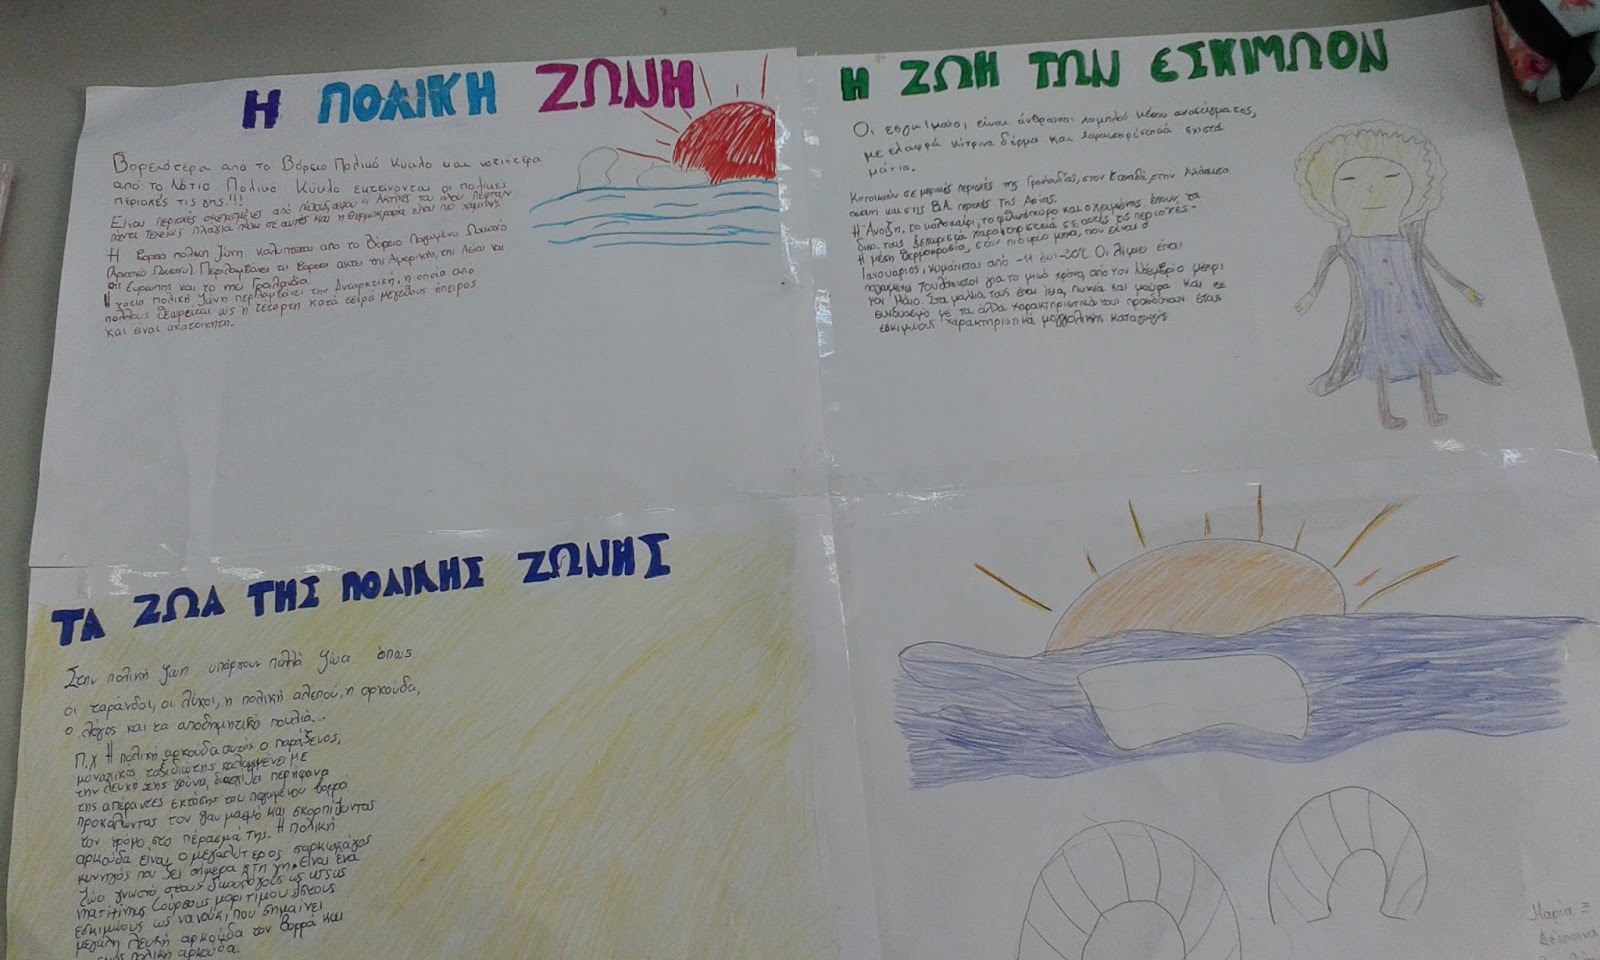 Η ΠΟΛΙΚΗ ΖΩΝΗ
Βορειότερα απο το Βόρειο Πολικό Κύκλο και νοτιότερα
απο το Νότιο Πολικό Κύκλο εκτείνονται οι πολικές
περιοχές τις γης!!!
Είναι περιοχές σκεπασμένες από πάγους, αφού οι Ακτίνες του ήλιου πέφτουν
πάντα τελείως πλάγια πάνω σε αυτές και η θερμοκρασία είναι πιο χαμηλή.
Η βόρεια πολική ζώνη καλύπτεται απο το Βόρειο Παγωμένο Ωκεανό
(Αρκτικό Ωκεανό). Περιλαμβάνει τις βόρειες ακτές της Αμερικής, της Ασίας και
της Ευρώπης και το νησί Γροιλανδία.
Η νοτια πολική ζώνη περιλαμβάνει την Ανταρκτική, η οποία απο
πολλους θεωρείται ως η τέταρτη κατά σειρά μεγέθους ήπειρος
και είναι ακατοίκητη.
Η ΖΩΗ ΤΩΝ ΕΣΚΙΜΩΟΝ
Οι εσκιμώοι είναι άνθρωποι χαμηλού μέσου αναστήματος,
με ελαφρά κίτρινο δέρμα και χαρακτηριστικά σχιστά
μάτια.
Κατοικούν σε μερικές περιοχές της Γροιλανδίας, στον Καναδά, στην Αλάσκα
και στις Β.Α. περιοχές της Ασίας.
Η Άνοιξη, το καλοκαίρι, το φθινόπωρο και ο χειμώνας έχουν τα
δικα τους ξεχωριστά χαρακτηριστικά σε αυτές τις περιοχές.
Η μέση θερμοκρασία, στον πιο κρύο μήνα, που είναι ο
Ιανουαριος, κυμαίνεται από -11 έως -20°C Οι λίμνες είναι
παγωμένες τουλάχιστον για το μισό χρόνο, από τον Νοέμβριο μέχρι
τον Μάιο. Τα μαλλιά τους είναι ίσια, πυκνά και μαύρα και σε
συνδυασμό με τα άλλα χαρακτηριστικά τους προσδίδουν στους
εσκιμώους χαρακτηριστικά μογγολικής καταγωγής
ΤΑ ΖΩΑ ΤΗΣ ΠΟΛΙΚΗΣ ΖΩΝΗΣ
Στην πολική ζώνη υπάρχουν πολλά ζώα όπως
οι τάρανδοι, οι λύκοι, η πολική αλεπού, η αρκούδα,
ο λαγός και τα αποδημητικά πουλιά...
Π.χ Η πολική αρκούδα αυτός ο παράξενος,
μοναχικός ταξιδιώτης καλυμμένο με
την λευκή της γούνα, διασχίζει περήφανα
της απέραντες εκτάσης του παγωμένου βορρά
προκαλώντας τον θαυμασμό και σκορπίζοντας
τον τρόμο στο πέρασμά της. Η πολική
αρκούδα είναι ο μεγαλύτερος σαρκοφάγος
κυνηγός που ζει σήμερα στη γη. Είναι ένα
ζώο γνωστό στους ζωολόγους ως
μαριτίμου στους
εσκιμώους ως νανούκ, που σημαίνει
μεγάλη λευκή αρκούδα του βορρά και
πολική αρκούδα.
Μαρία Ξ
Δέσποινα